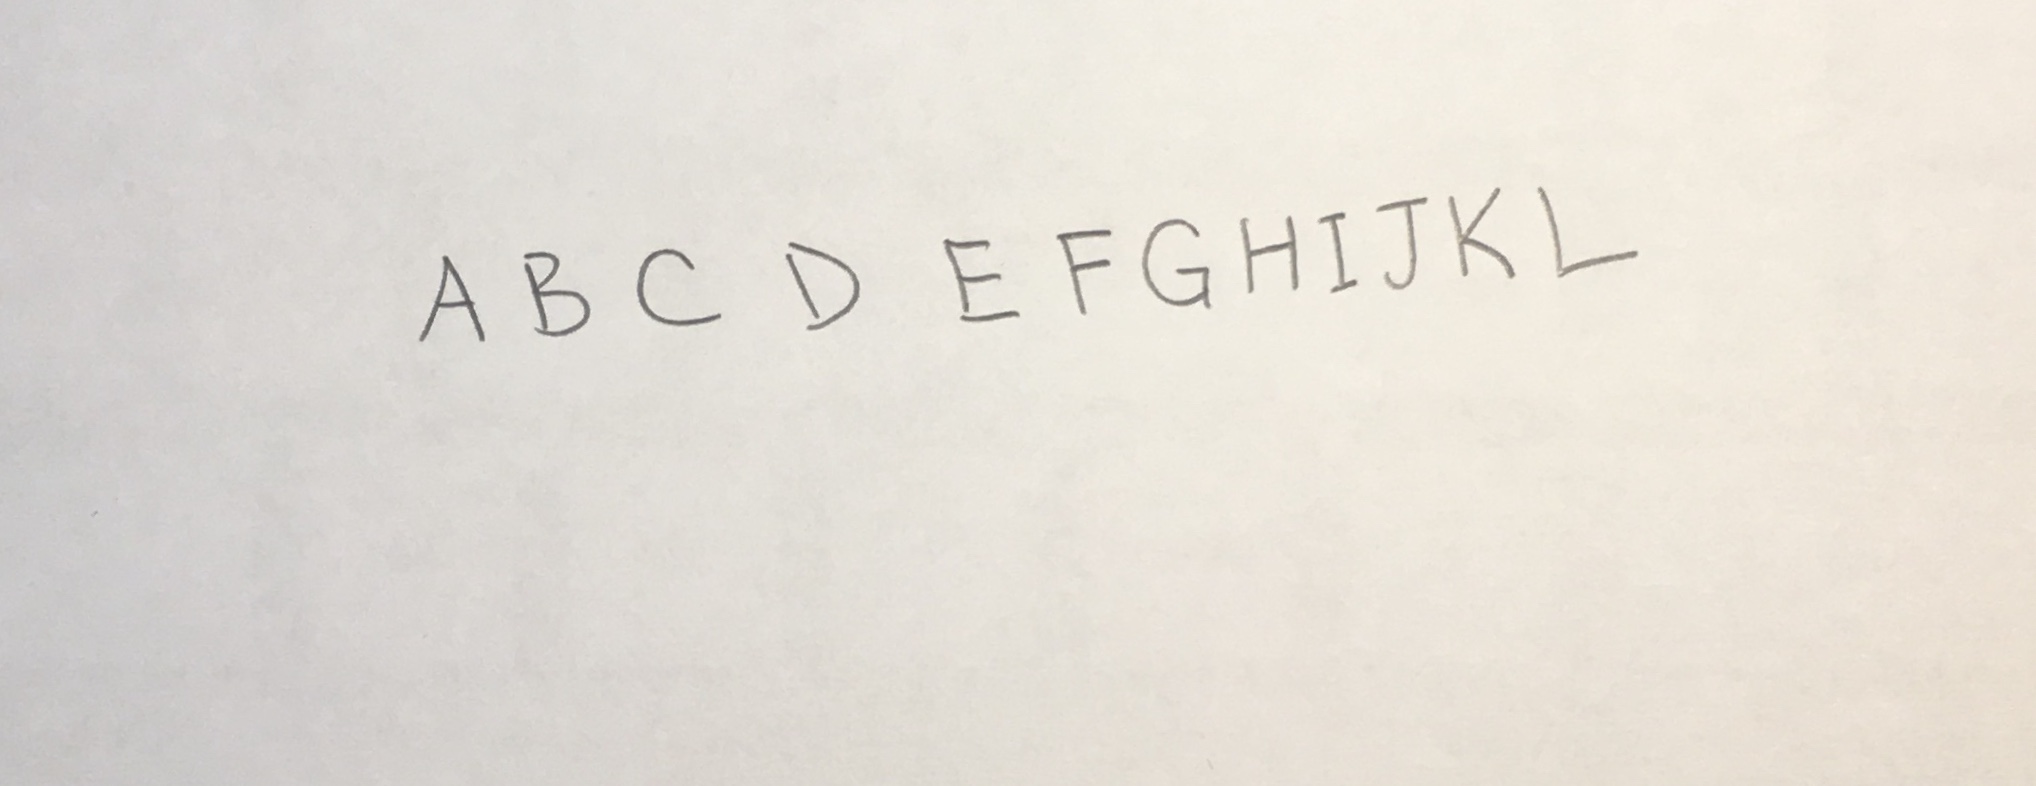 A B C D E F G H I J K L